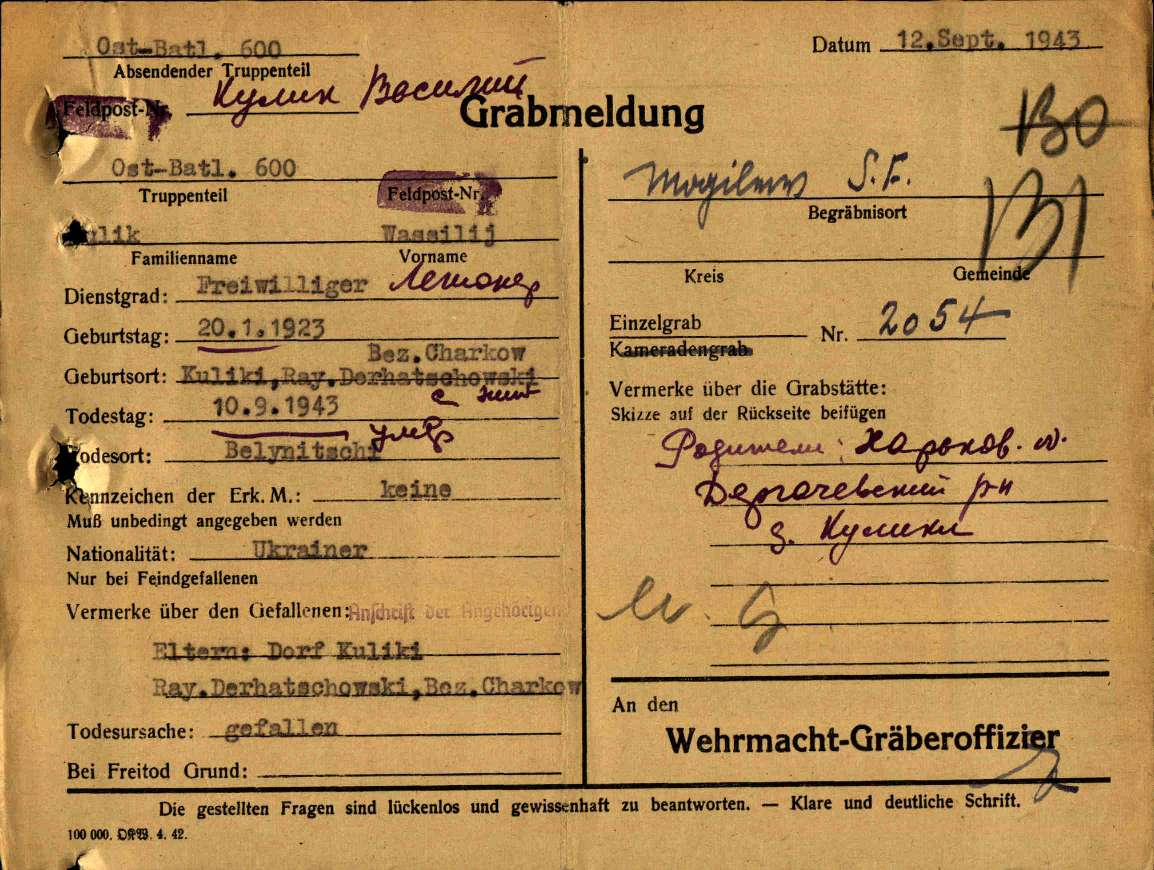 Ost-Batl. 600
Absendender Truppenteil
Datum 12.Sept. 1943
Feldpost-Nr. Кулик Василий
Grabmeldung
130
Ost-Batl. 600
Truppenteil Feldpost-Nr.
ulik Wassilij
Familienname Vorname
Dienstgrad: Freiwilliger
Geburtstag: 20.1.1923
Bez.Charkow
Geburtsort: Kuliki,Ray.Derhatschowski
Todestag: 10.9.1943
умер
Todesort: Belynitschi
Kennzeichen der Erk. M.: keine
Muß unbedingt angegeben werden
Nationalität: Ukrainer
Nur bei Feindgefallenen
Vermerke über den Gefallenen: Anschrift der Angehörigen
Eltern: Dorf Kuliki
Ray.Derhatschowski,Bez.Charkow
Todesursache: gefallen
Bei Freitod Grund:
Mogilew S.F.
Begräbnisort
131
Kreis Gemeinde
Einzelgrab
Nr. 2054
Kameradengrab
Vermerke über die Grabstätte:
Skizze auf der Rückseite beifügen
Родители: Харьков. о.
Дергачевский р-н
Кулики
An den
Wehrmacht-Gräberoffizier
Die gestellten Fragen sind lückenlos und gewissenhaft zu beantworten. — Klare und deutliche Schrift.
100 000. 4. 42.